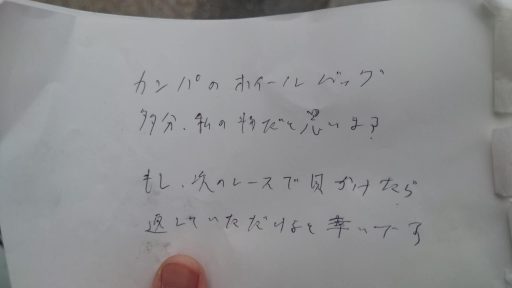 カンパのホイールバッグ
多分、私の物だと思います
もし、次のレースで見かけたら
返していただけると幸いです